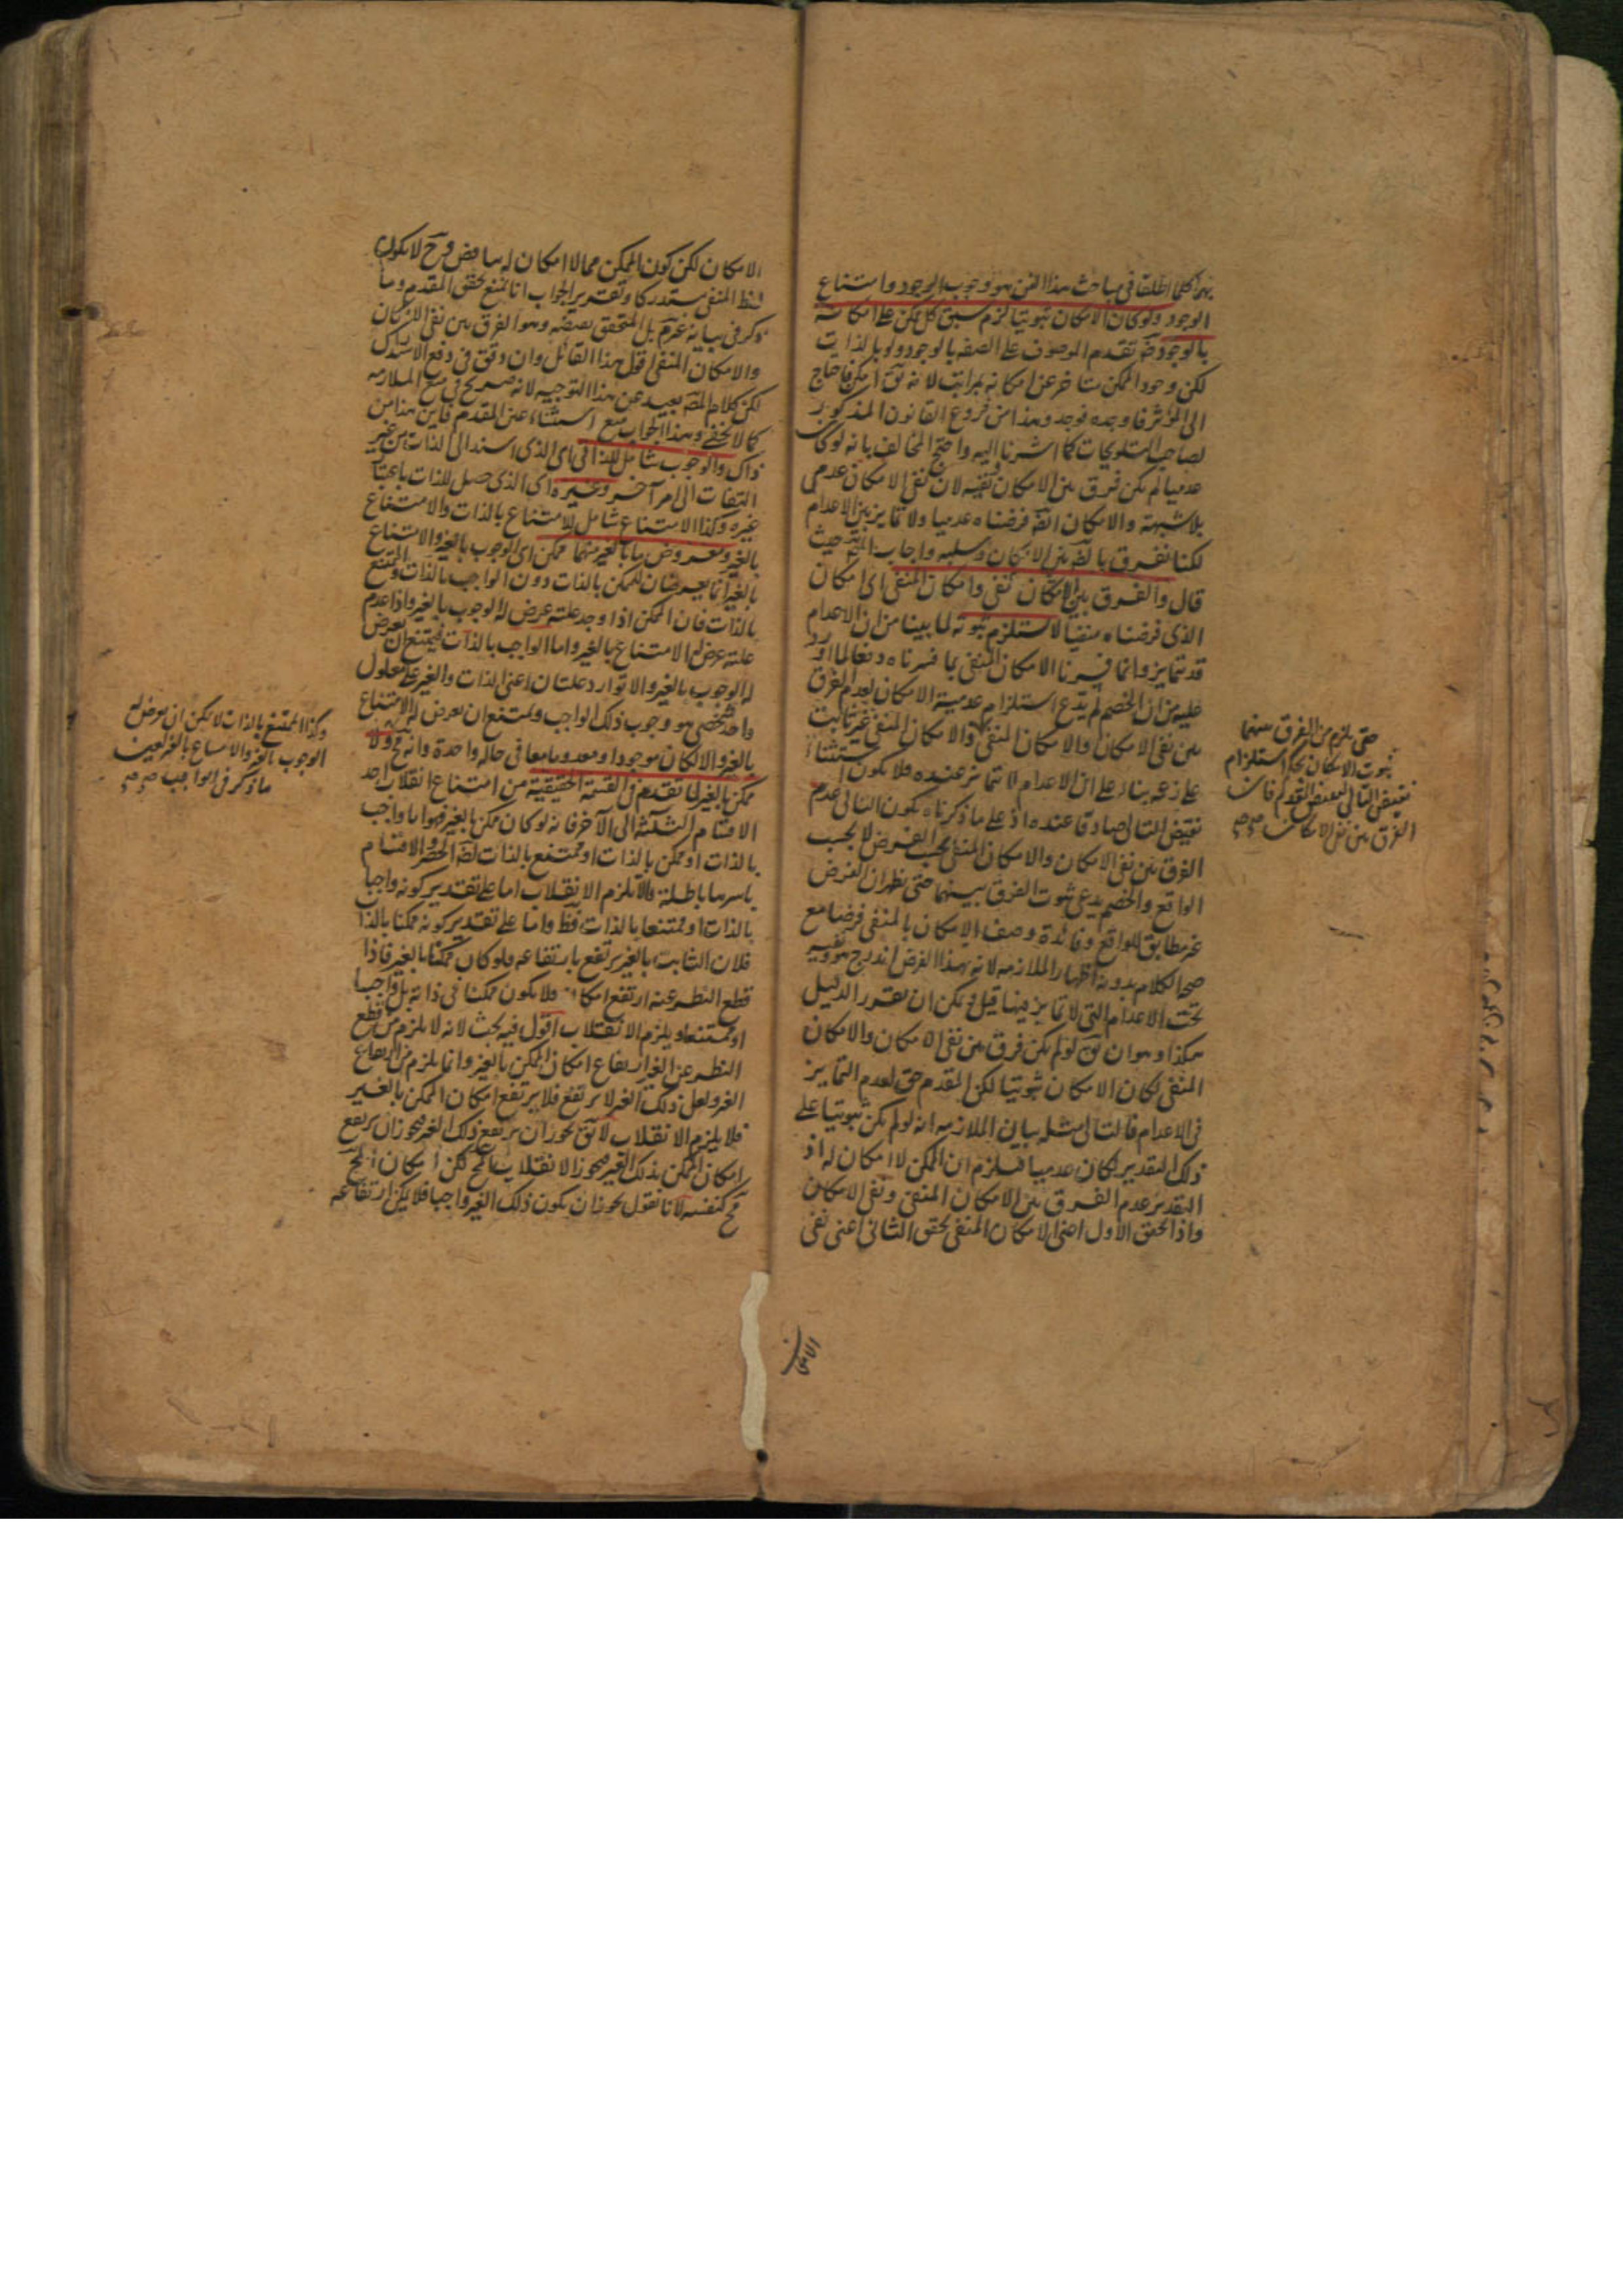 بهما كلما اطلقا في مباحث هذا الفن هو وجوب الوجود وامتناع
الوجود ولو كان الامكان ثبوتيا لزم سبق كل ممكن على امكانه
بالوجود تقدم الموصوف على الصفة بالوجود ولو بالذات
لكن وجود الممكن متاخر عن امكانه بمراتب لانه يق امكن فاحتاج
الى المؤثر فاوجده فوجد وهذا من فروع القانون المذكور
لصاحب التلويحات كما اشرنا اليه واحتج المخالف بانه لو كان
عدميا لم يكن فرق بين الامكان ونفيه لان نفي الامكان عدمي
بلا شبهة والامكان ايضا فرضناه عدميا ولا تمايز بين الاعدام
لكنا نفرق بالضرورة بين الامكان وسلبه واجاب حيث
قال والفرق بين نفي الامكان وامكان المنفي اي امكان
الذي فرضناه منفيا لا يستلزم ثبوته لما بينا من ان الاعدام
قد تتمايز وانما فسرنا الامكان المنفي بما فسرناه دفعا لما اورد
عليه من ان الخصم لم يدع استلزام عدمية الامكان لعدم الفرق
بين نفي الامكان والامكان المنفي والامكان المنفي غير ثابت
على زعمه بناء على ان الاعدام لا تتمايز عنده فلا يكون استثناء
نقيض التالي صادقا عنده اذ على ما ذكرناه يكون التالي عدم
الفرق بين نفي الامكان والامكان المنفي بحسب الفرض لا بحسب
الواقع والخصم يدعي ثبوت الفرق بينهما حتى يظهر ان الفرض
غير مطابق للواقع وفائدة وصف الامكان بالمنفي فرضا مع
صحة الكلام بدونه اظهار الملازمة لانه بهذا الفرض اندرج هو ونفيه
تحت الاعدام التي لا تمايز فيها قيل ويمكن ان يقرر الدليل
هكذا وهو ان يق لو لم يكن فرق بين نفي الامكان والامكان
المنفي لكان الامكان ثبوتيا لكن المقدم حق لعدم التمايز
في الاعدام فالتالي مثله بيان الملازمة انه لو لم يكن ثبوتيا على
ذلك التقدير لكان عدميا فيلزم ان الممكن لا امكان له اذ
التقدير عدم الفرق بين الامكان المنفي ونفي الامكان
واذا تحقق الاول اعني الامكان المنفي تحقق الثاني اعني نفي
حتى يلزم من الفرق بينهما
ثبوت الامكان بحكم استلزام
نقيض التالي لنقيض المقدم فان
الفرق بين نفي الامكان
الامكان
الامكان لكن كون الممكن مما لا امكان له تناقض وح لا يكون
لفظ المنفي مستدركا وتقرير الجواب انا نمنع تحقق المقدم وما
ذكر في بيانه غير تم بل المتحقق نقيضه وهو الفرق بين نفي الامكان
والامكان المنفي اقول هذا القائل وان وفق في دفع الاستدراك
لكن كلام المص بعيد عن هذا التوجيه لانه صريح في منع الملازمة
كما لا يخفى وهذا الجواب منع استثناء عين المقدم فاين هذا من
ذاك والوجوب شامل للذاتي اي الذي استند الى الذات من غير
التفات الى امر آخر وغيره اي الذي حصل للذات باعتبار
غيره وكذا الامتناع شامل للامتناع بالذات والامتناع
بالغير ومعروض ما بالغير منهما ممكن اي الوجوب بالغير والامتناع
بالغير انما يعرضان للممكن بالذات دون الواجب بالذات والممتنع
بالذات فان الممكن اذا وجد علته عرض له الوجوب بالغير واذا عدم
علته عرض له الامتناع بالغير واما الواجب بالذات فيمتنع ان يعرض
له الوجوب بالغير والا توارد علتان اعني الذات والغير على معلول
واحد شخصي هو وجوب ذلك الواجب ويمتنع ان يعرض له الامتناع
بالغير والا لكان موجودا ومعدوما معا في حالة واحدة وانه مح ولا
ممكن بالغير لما تقدم في القسمة الحقيقية من امتناع انقلاب احد
الاقسام الثلثة الى الآخر فانه لو كان ممكن بالغير فهو اما واجب
بالذات او ممكن بالذات او ممتنع بالذات لضرورة الحصر والاقسام
باسرها باطلة والا يلزم الانقلاب اما على تقدير كونه واجبا
بالذات او ممتنعا بالذات فظ واما على تقدير كونه ممكنا بالذات
فلان الثابت بالغير يرتفع بارتفاعه فلو كان ممكنا بالغير فاذا
قطع النظر عنه ارتفع امكانه فلا يكون ممكنا في ذاته بل واجبا
او ممتنعا ويلزم الانقلاب اقول فيه بحث لانه لا يلزم من قطع
النظر عن الغير ارتفاع امكان الممكن بالغير وانما يلزم من ارتفاع
الغير ولعل ذلك الغير لا يرتفع فلا يرتفع امكان الممكن بالغير
فلا يلزم الانقلاب لا يق يجوز ان يرتفع ذلك الغير فيجوز ان يرتفع
امكان الممكن بذلك الغير فيجوز الانقلاب المح لكن امكان المح
مح كنفسه لانا نقول يجوز ان يكون ذلك الغير واجبا فلا يمكن ارتفاعه
وكذا الممتنع بالذات لا يمكن ان يعرض له
الوجوب بالغير والامتناع بالغير لعين
ما ذكر في الواجب